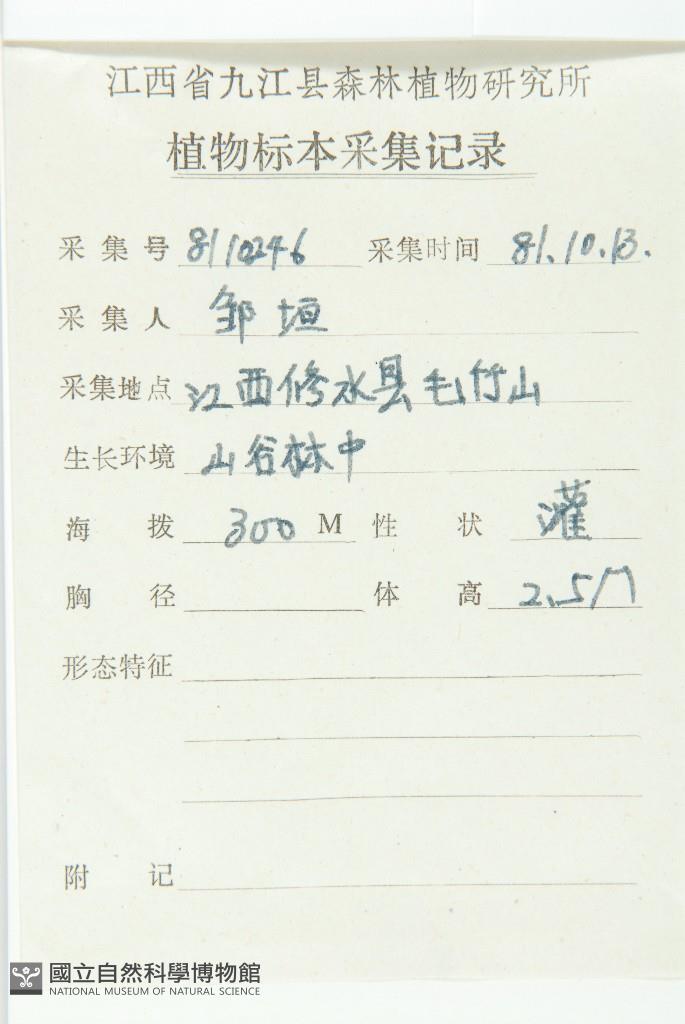 江西省九江县森林植物研究所
植物标本采集记录
采集号 8110246 采集时间 81.10.13.
采集人 邹垣
采集地点 江西修水县毛竹山
生长环境 山谷林中
海拨 300 M 性状 灌
胸径 体高 2.5M
形态特征
附记
國立自然科學博物館
NATIONAL MUSEUM OF NATURAL SCIENCE